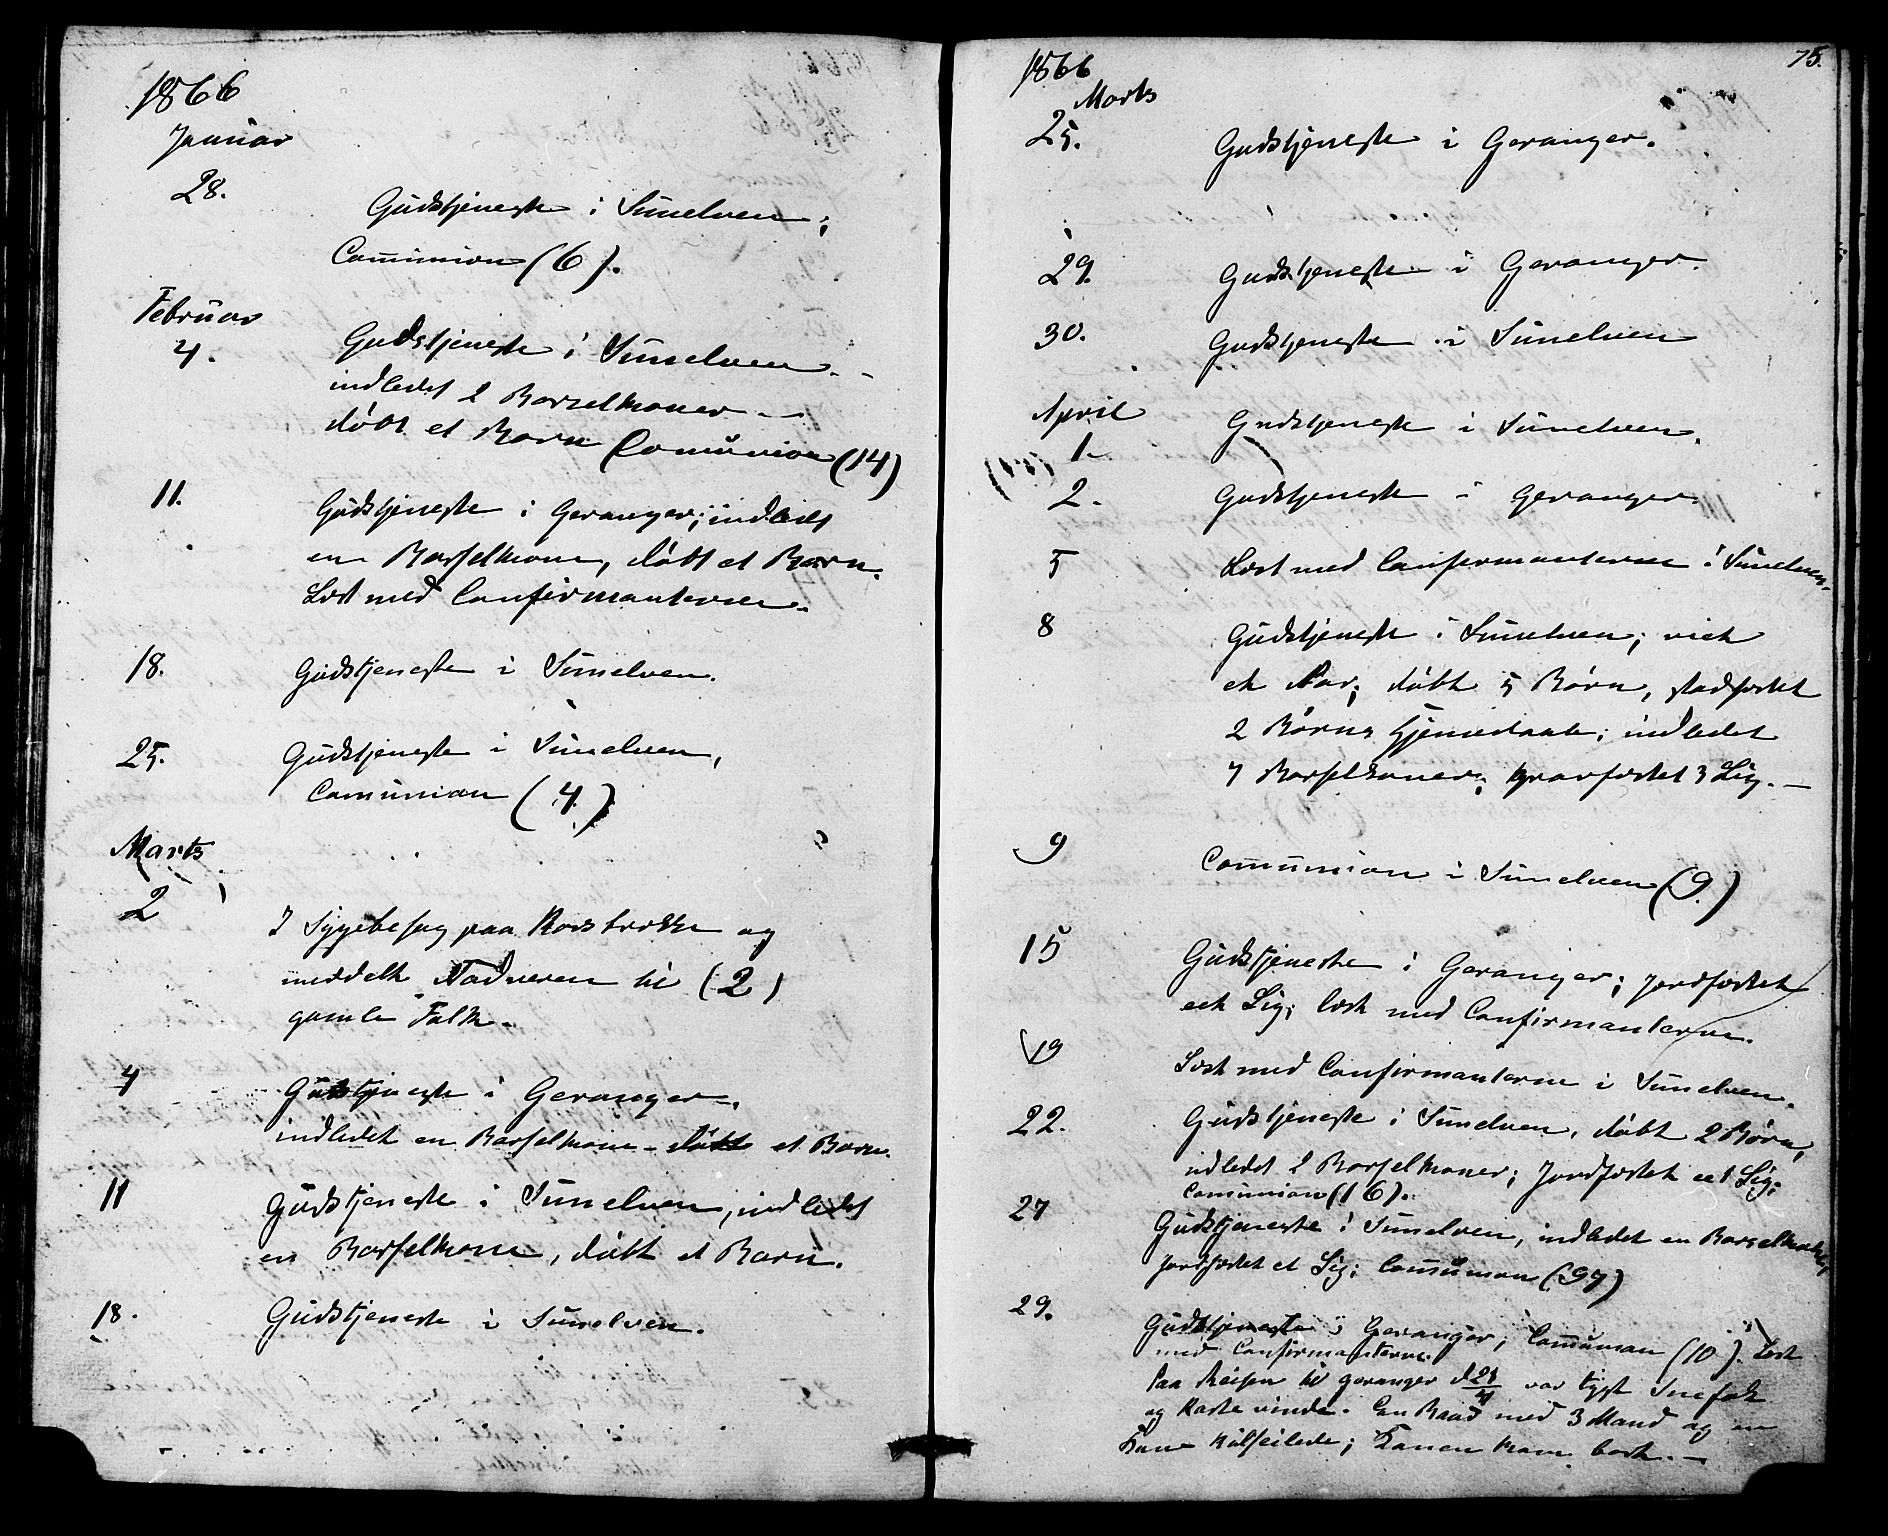 1866
Januar
28. Gudstjeneste i Sunelven;
Comunion (6).
Februar
4. Gudstjeneste i Sunelven -
indledet 2 Barselkoner -
döbt et Barn Comunion (14)
11. Gudstjeneste i Geranger; indledt
en Barselkone, döbt et Barn.
Læst med Confirmanterne.
18. Gudstjeneste i Sunelven.
25. Gudstjeneste i Sunelven,
Comunion (4.)
Marts
2 I Sygebesøg paa Korsbrekke og
meddelt Nadveren til (2)
gamle Folk.
4 Gudstjeneste i Geranger.
indledet en Barselkone - döbt et Barn.
11 Gudstjeneste i Sunelven, indledet
en Barselkone, döbt et Barn.
18. Gudstjeneste i Sunelven.
1866
75.
Marts
25. Gudstjeneste i Geranger.
29. Gudstjeneste i Geranger.
30. Gudstjeneste i Sunelven
April
1. Gudstjeneste i Sunelven.
2. Gudstjeneste i Geranger.
5 Læst med Confirmanterne i Sunelven.
8 Gudstjeneste i Sunelven; viet
et Par; döbt 5 Börn, stadfæstet
2 Börns Hjemedaab; indledet
7 Barselkoner; gravfæstet 3 Lig. -
9 Comunion i Sunelven (9.)
15 Gudstjeneste i Geranger; Jordfæstet
eet Lig; læst med Confirmanterne.
19 Læst med Confirmanterne i Sunelven.
22. Gudstjeneste i Sunelven, döbt 2 Börn,
indledet 2 Barselkoner; Jordfæstet eet Lig;
Comunion (16).
27 Gudstjeneste i Sunelven, indledet en Barselkone,
jordfæstet et Lig; Comunion (97)
29. Gudstjeneste i Geranger; Comunion (10). Læst
med Confirmanterne.
Paa Reisen til Geranger d 28/4 var tygt Snefok
og Kastevinde. En Baad med 3 Mand og en
Kone kulseilede; Konen kom bort. -